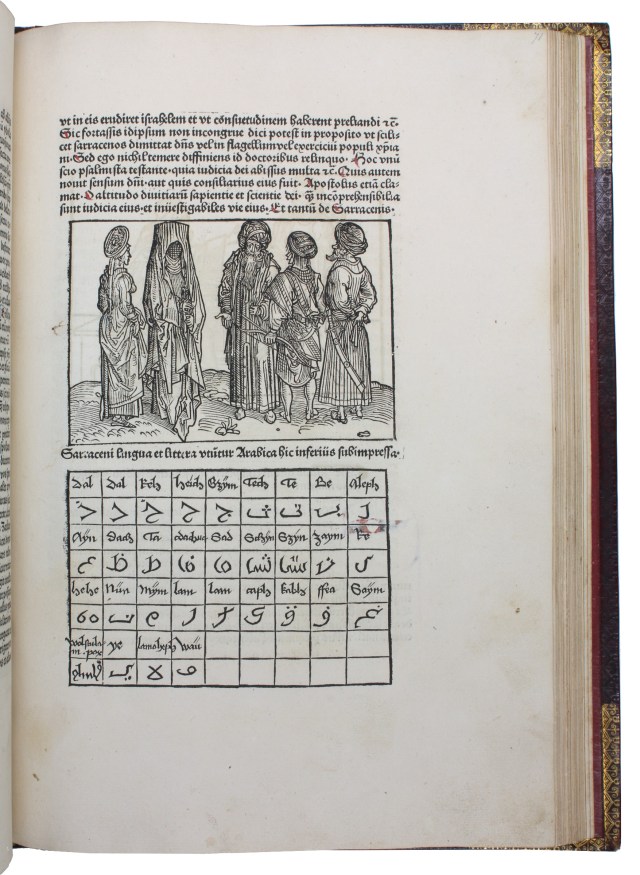 vt in eis erudiret israhelem et vt consuetudinem haberent preliandi ⁊c̄.
Sic fortassis idipsum non incongrue dici potest in proposito vt scili⸗
cet sarracenos dimittat dn̄s vel in flagellum vel exerciciū populi xp̄ia
ni. Sed ego nichil temere diffiniens id doctoribus relinquo. Hoc vnū
scio psalmista testante. quia iudicia dei abissus multa ⁊c̄. Quis autem
nouit sensum dn̄i. aut quis consiliarius eius fuit. Apostolus etiā cla⸗
mat. O altitudo diuitiarū sapientie et scientie dei. q̄ᷓ incōprehensibilia
sunt iudicia eius. et inuestigabiles vie eius. Et tantū de Sarracenis.
Sarraceni lingua et littera vtūtur Arabica hic inferius subimpressa.
Dal Dal Keh heich Gzÿm Tech Te Be Aleph
د د خ ح ج ث ت ب ا
Aÿn Dach Ta Sad Schzÿn Szÿn Zaym Re
ع ظ ط ض ص ش س ز ر
hehe Nūn Mÿm lam lam caph kabh ffea Gaÿm
ه ن م ل ل ك ق ف غ
ye lamoheph Wau
ي لا و